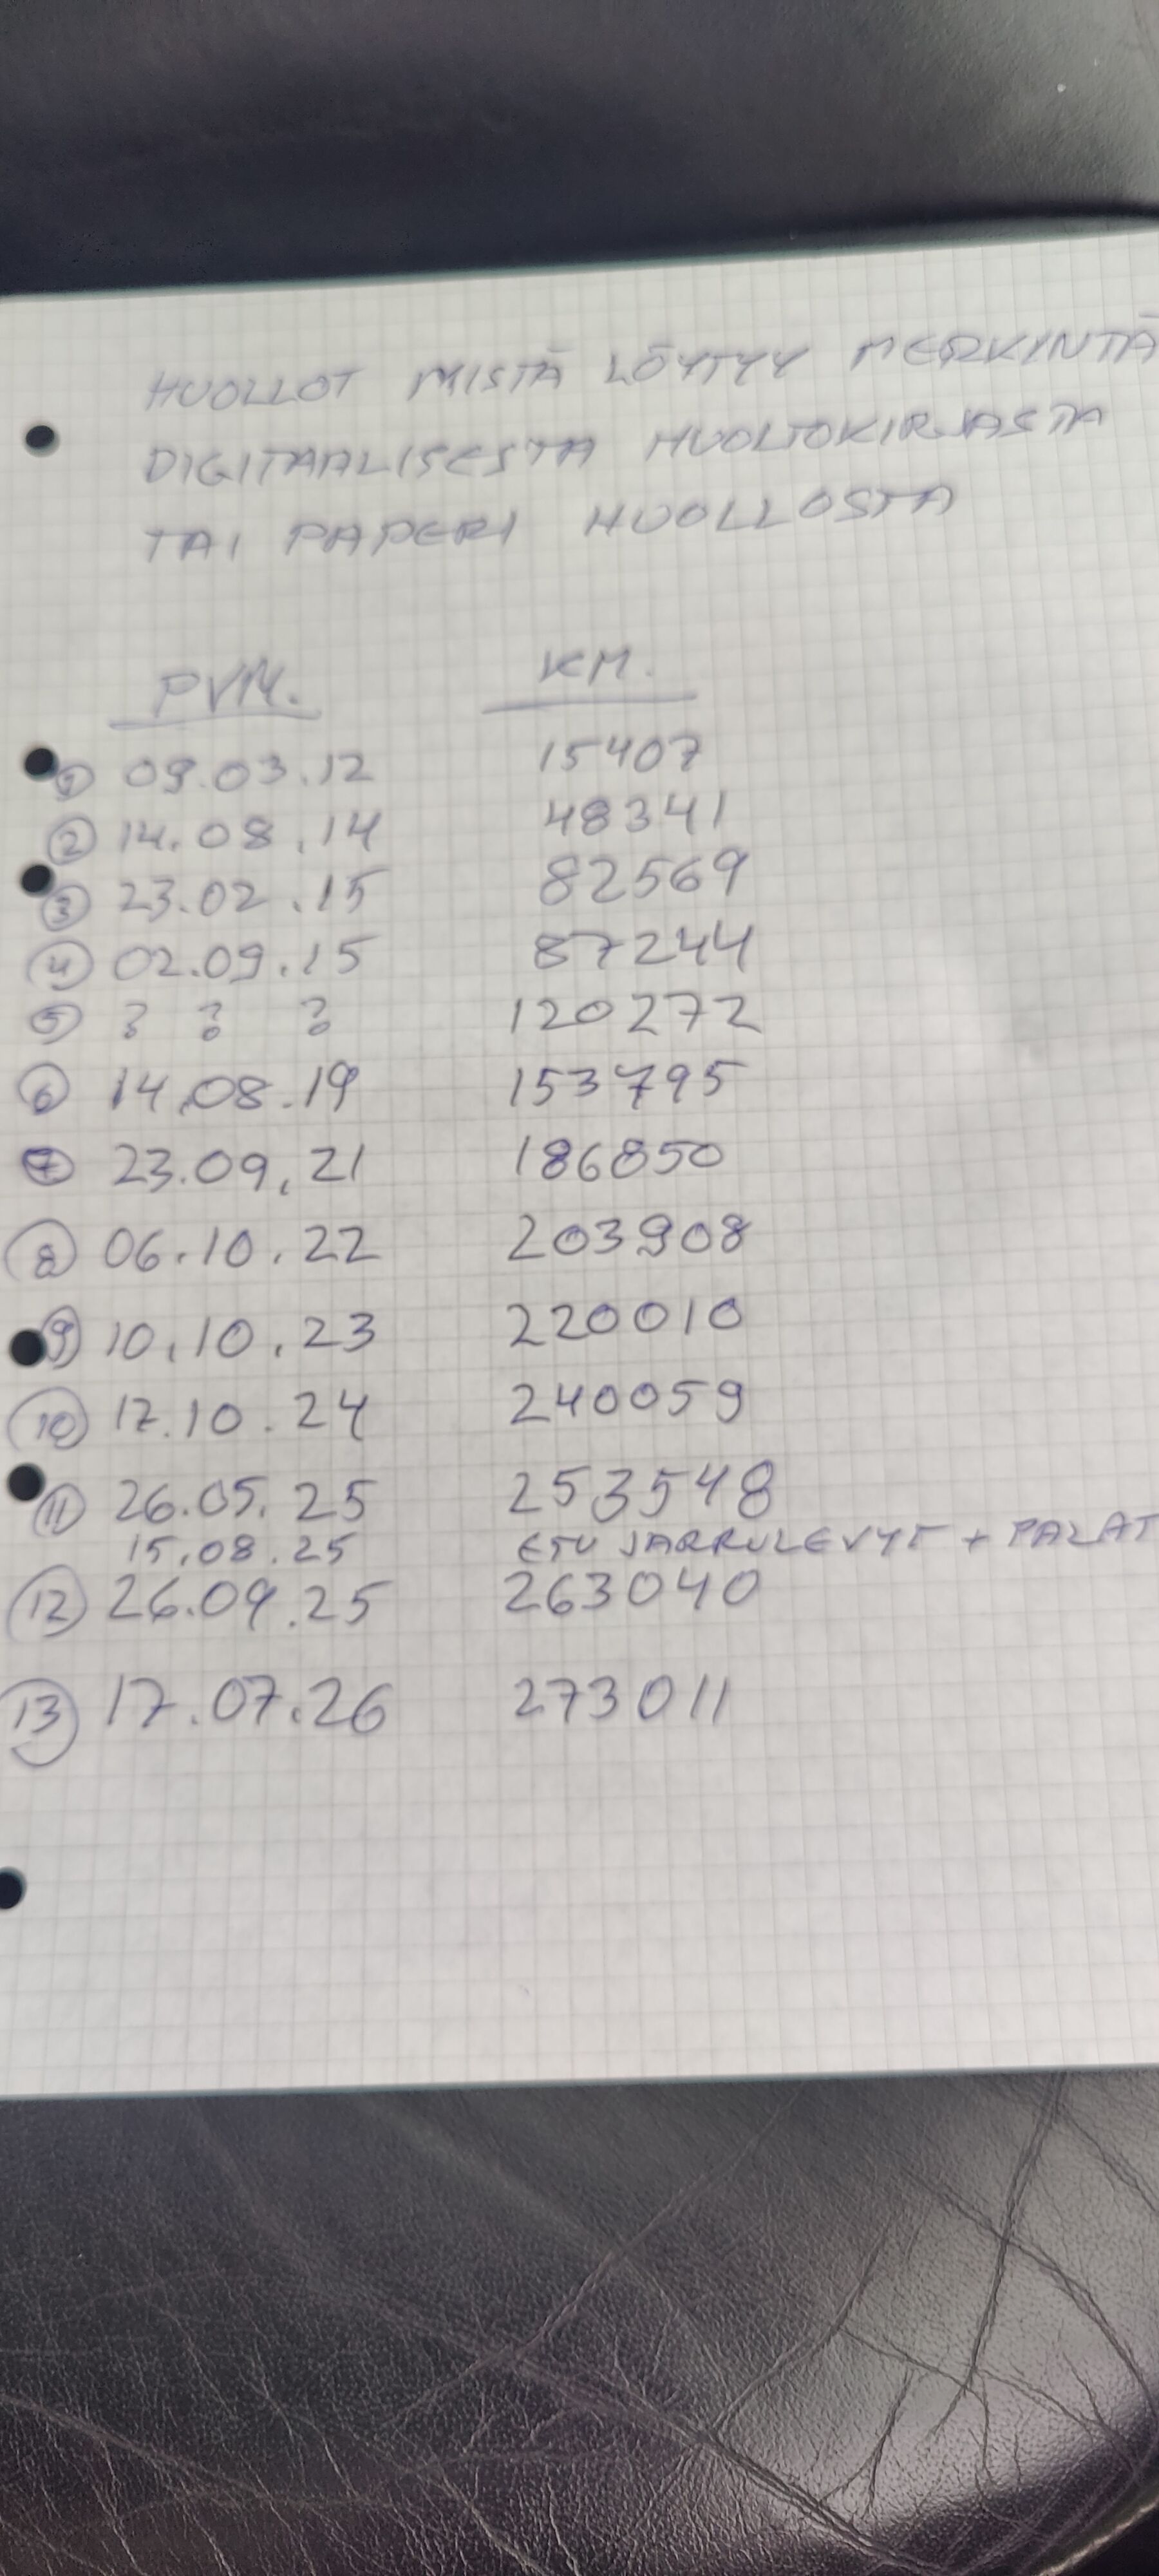 HUOLLOT MISTÄ LÖYTYY MERKINTÄ
DIGITAALISESTA HUOLTOKIRJASTA
TAI PAPERI HUOLLOSTA
PVM. KM.
1 09.03.12 15407
2 14.08.14 48341
3 23.02.15 82569
4 02.09.15 87244
5 ? ? ? 120272
6 14.08.19 153795
7 23.09.21 186850
8 06.10.22 203908
9 10.10.23 220010
10 17.10.24 240059
11 26.05.25 253548
15.08.25 ETU JARRULEVYT + PALAT
12 26.09.25 263040
13 17.07.26 273011